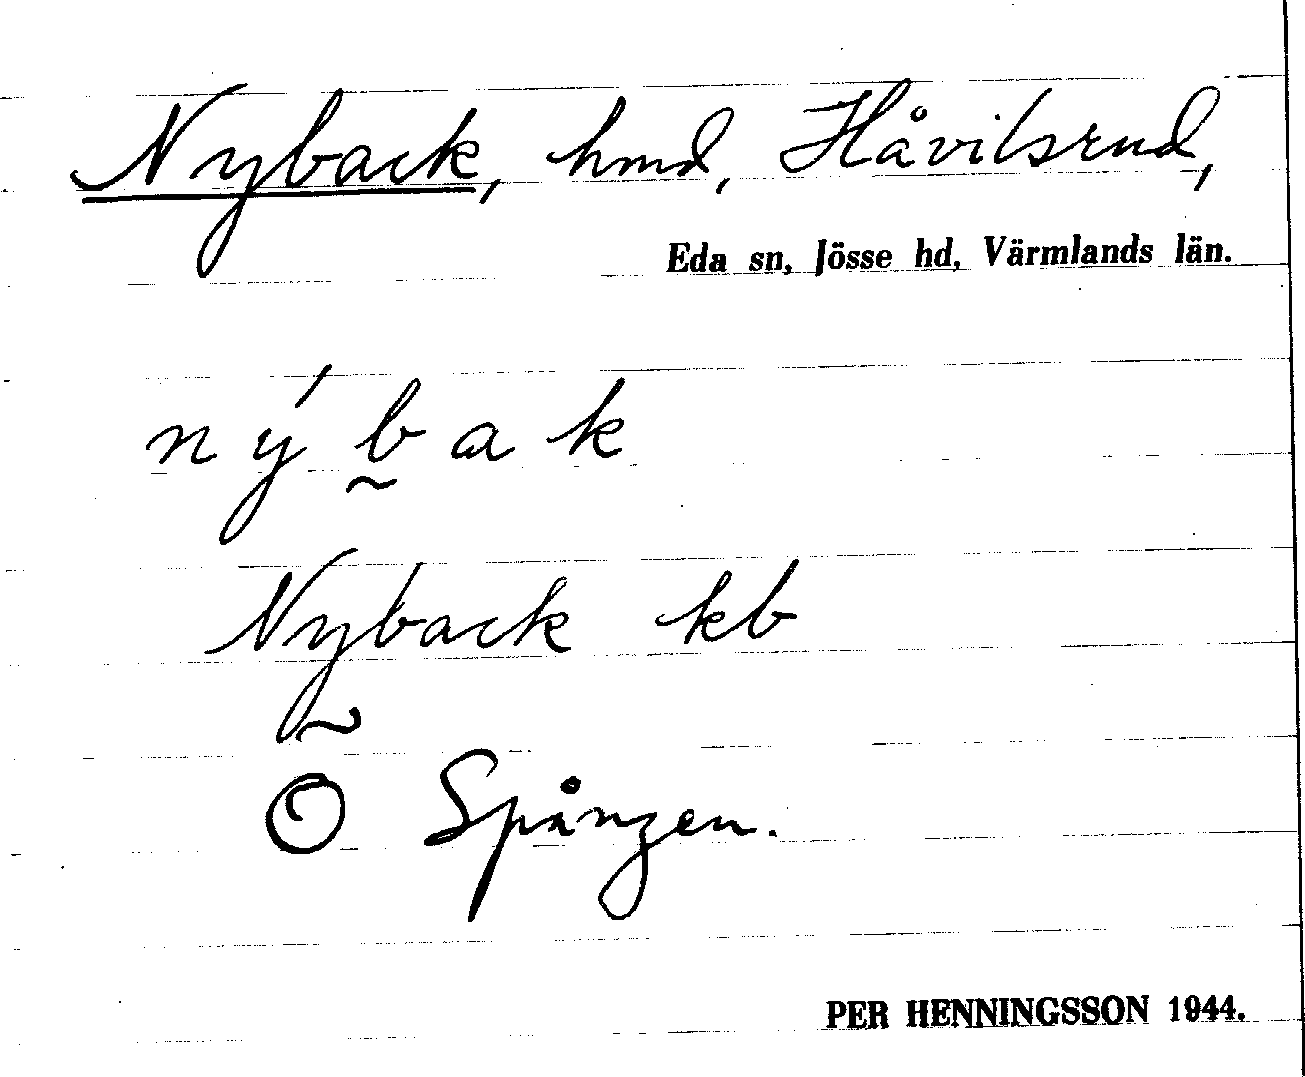 Nyback, hmd, Håvilsrud,
Eda sn, Jösse hd, Värmlands län.
n ý b̰ a k
Nyback kb
Õ Spången.
PER HENNINGSSON 1944.